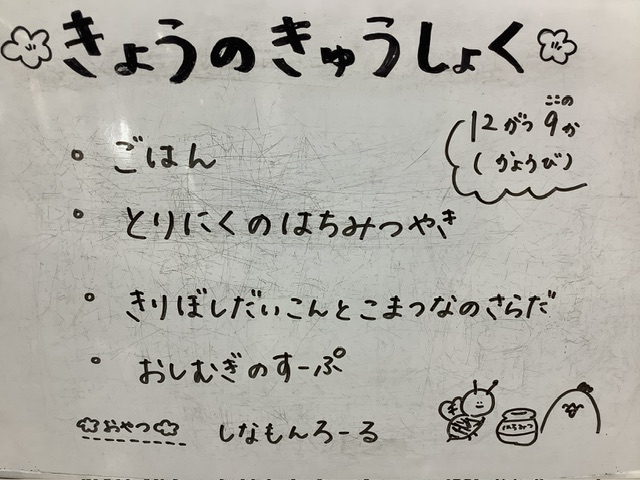 きょうのきゅうしょく
ここの
12がつ9か
(かようび)
ごはん
とりにくのはちみつやき
きりぼしだいこんとこまつなのさらだ
おしむぎのすーぷ
おやつ しなもんろーる
はちみつ